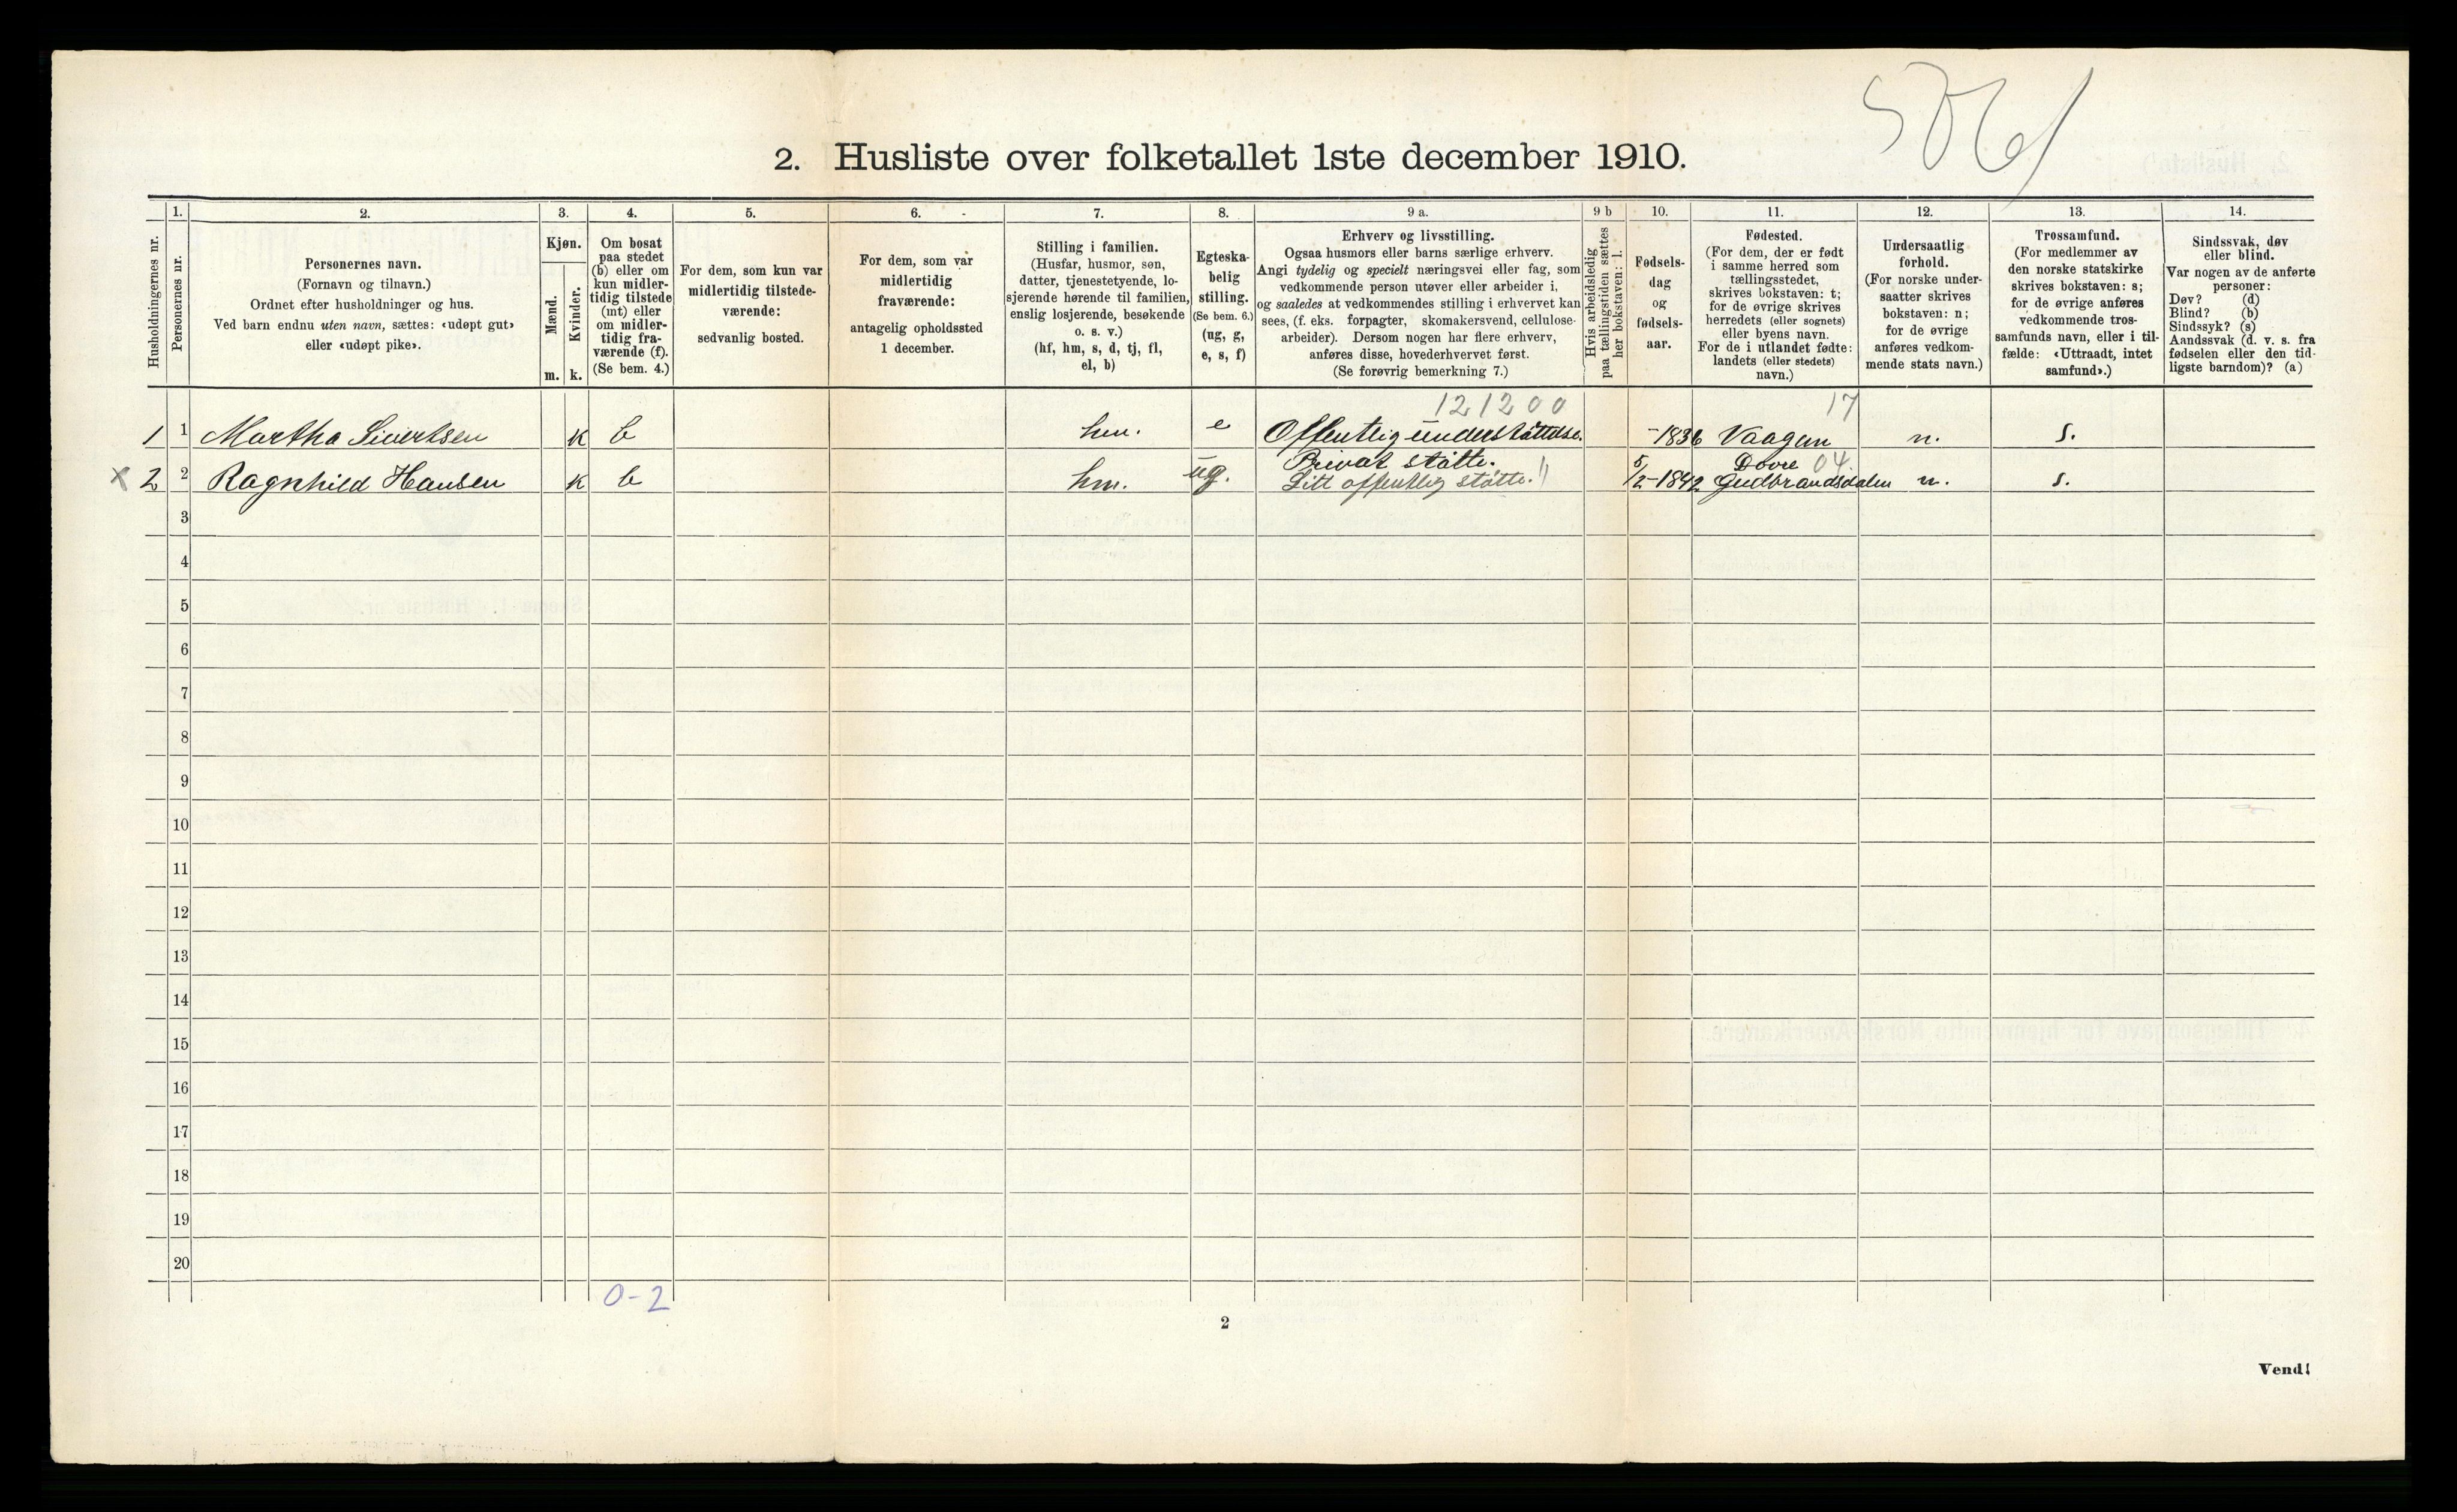 2. Husliste over folketallet 1ste december 1910.
Husholdningernes nr.
1.
Personernes nr.
2.
Personernes navn.
(Fornavn og tilnavn.)
Ordnet efter husholdninger og hus.
Ved barn endnu uten navn, sættes: «udøpt gut»
eller «udøpt pike».
3.
Kjøn.
Mænd.
Kvinder.
m. k.
4.
Om bosat
paa stedet
(b) eller om
kun midler-
tidig tilstede
(mt) eller
om midler-
tidig fra-
værende (f).
(Se bem. 4.)
5.
For dem, som kun var
midlertidig tilstede-
værende:
sedvanlig bosted.
6.
For dem, som var
midlertidig
fraværende:
antagelig opholdssted
1 december.
7.
Stilling i familien.
(Husfar, husmor, søn,
datter, tjenestetyende, lo-
sjerende hørende til familien,
enslig losjerende, besøkende
o. s. v.)
(hf, hm, s, d, tj, fl,
el, b)
8.
Egteska-
belig
stilling.
(Se bem. 6.)
(ug, g,
e, s, f)
9 a.
Erhverv og livsstilling.
Ogsaa husmors eller barns særlige erhverv.
Angi tydelig og specielt næringsvei eller fag, som
vedkommende person utøver eller arbeider i,
og saaledes at vedkommendes stilling i erhvervet kan
sees, (f. eks. forpagter, skomakersvend, cellulose-
arbeider). Dersom nogen har flere erhverv,
anføres disse, hovederhvervet først.
(Se forøvrig bemerkning 7.)
9 b
Hvis arbeidsledig
paa tællingstiden sættes
her bokstaven: l.
10.
Fødsels-
dag
og
fødsels-
aar.
11.
Fødested.
(For dem, der er født
i samme herred som
tællingsstedet,
skrives bokstaven: t;
for de øvrige skrives
herredets (eller sognets)
eller byens navn.
For de i utlandet fødte:
landets (eller stedets)
navn.)
12.
Undersaatlig
forhold.
(For norske under-
saatter skrives
bokstaven: n;
for de øvrige
anføres vedkom-
mende stats navn.)
13.
Trossamfund.
(For medlemmer av
den norske statskirke
skrives bokstaven: s;
for de øvrige anføres
vedkommende tros-
samfunds navn, eller i til-
fælde: «Uttraadt, intet
samfund».)
14.
Sindssvak, døv
eller blind.
Var nogen av de anførte
personer:
Døv? (d)
Blind? (b)
Sindssyk? (s)
Aandssvak (d. v. s. fra
fødselen eller den tid-
ligste barndom)? (a)
121200 17
1 1 Martha Sivertsen k b hm. e Offentlig understøttelse. -1836 Vaagan n. s.
Privat støtte. Dovre 04
x 2 2 Ragnhild Hansen k b hm. ug. Litt offentlig støtte. 5/2-1842 Gudbrandsdalen n. s.
3
4
5
6
7
8
9
10
11
12
13
14
15
16
17
18
19
20
0-2
2
Vend!